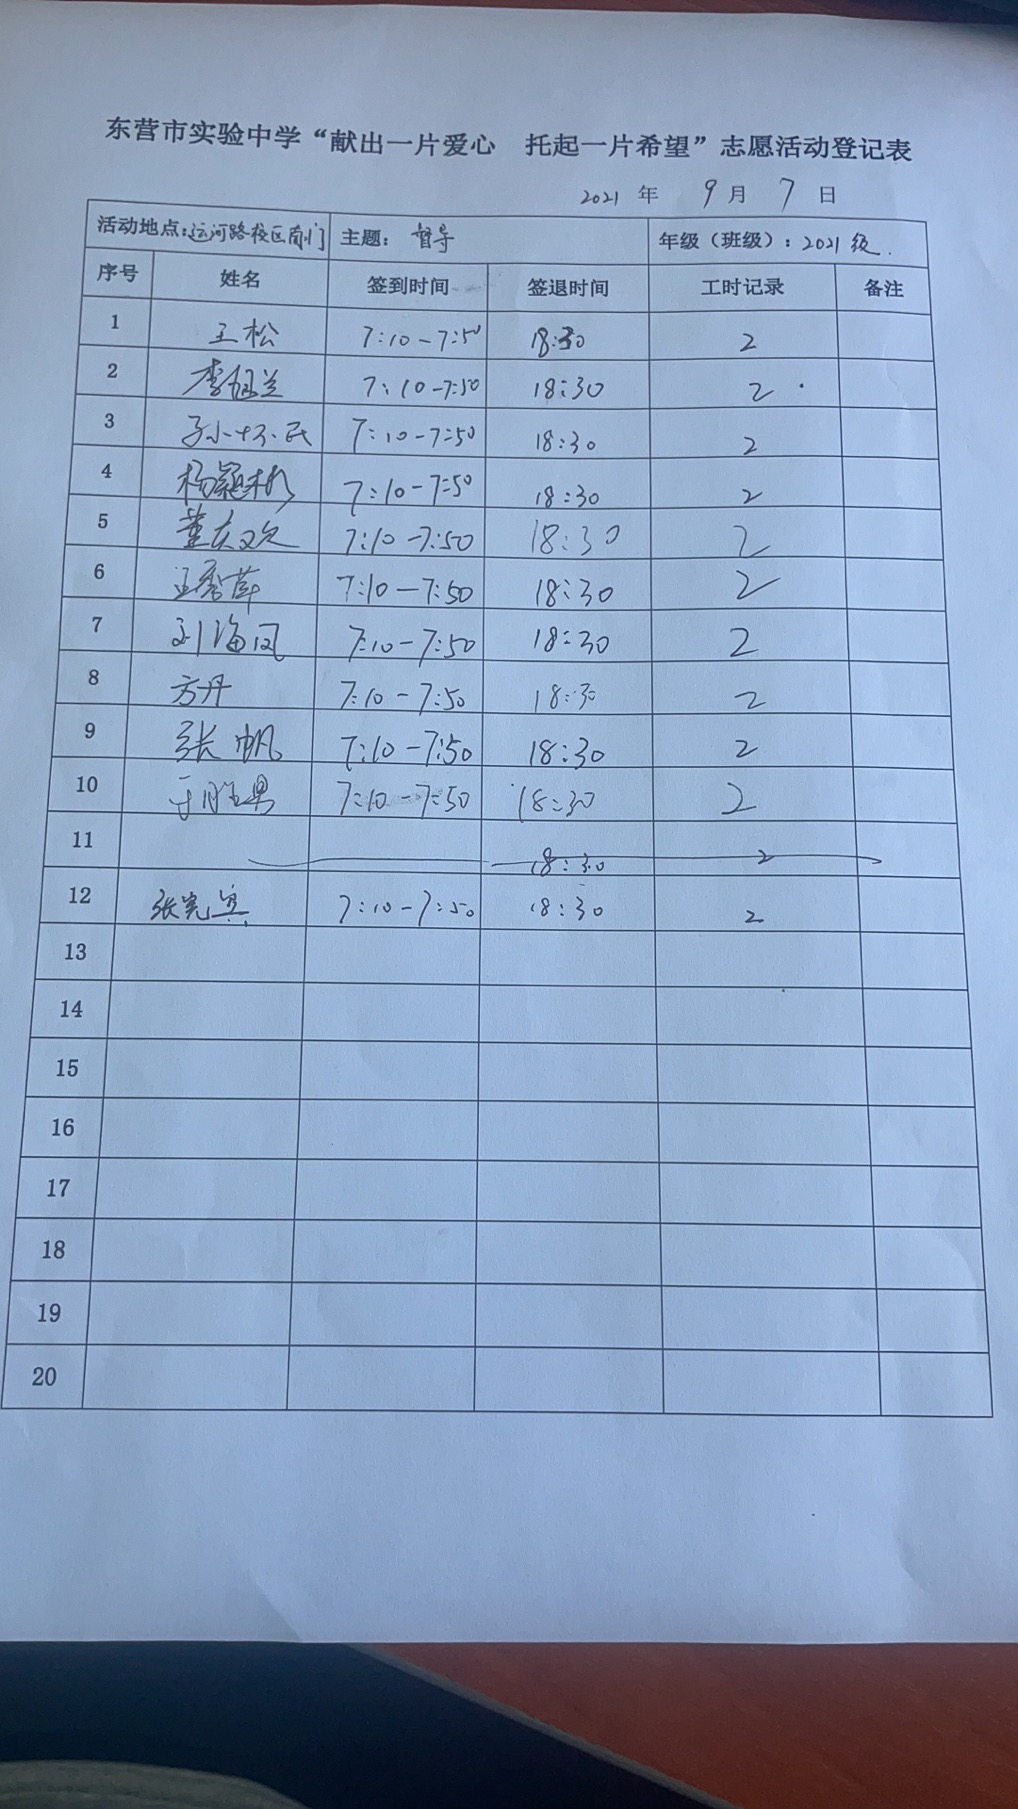 东营市实验中学“献出一片爱心 托起一片希望”志愿活动登记表
2021 年 9 月 7 日
活动地点:运河路校区南门 主题: 督导 年级（班级）: 2021级.
序号 姓名 签到时间 签退时间 工时记录 备注
1 王松 7:10-7:50 18:30 2
2 7:10-7:50 18:30 2
3 7:10-7:50 18:30 2
4 7:10-7:50 18:30 2
5 董庆欢 7:10-7:50 18:30 2
6 王秀萍 7:10-7:50 18:30 2
7 刘海凤 7:10-7:50 18:30 2
8 方丹 7:10-7:50 18:30 2
9 张帆 7:10-7:50 18:30 2
10 于胜男 7:10-7:50 18:30 2
11 18:30 2
12 张宪宾 7:10-7:50 18:30 2
13
14
15
16
17
18
19
20